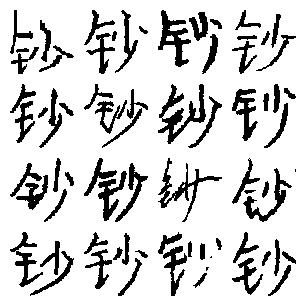 钞钞钞钞
钞钞钞钞
钞钞钞钞
钞钞钞钞